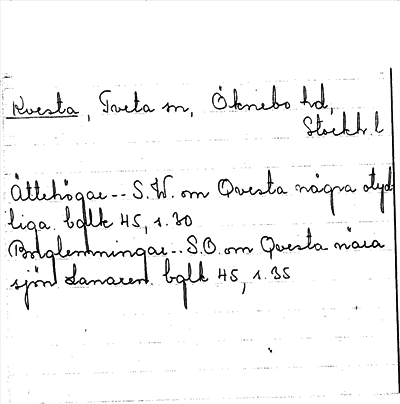 Kvesta, Tveta sn, Öknebo hd,
Stockh. l
Ättehögar -- S.W. om Qvesta några otyd
liga. bglk 45, s. 30
Borglemningar -- S.O. om Qvesta nära
sjön Lanaren. bglk 45, s. 35